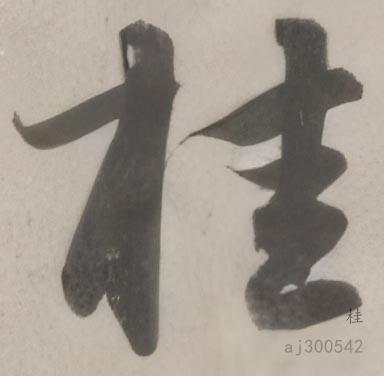 桂
桂
aj300542